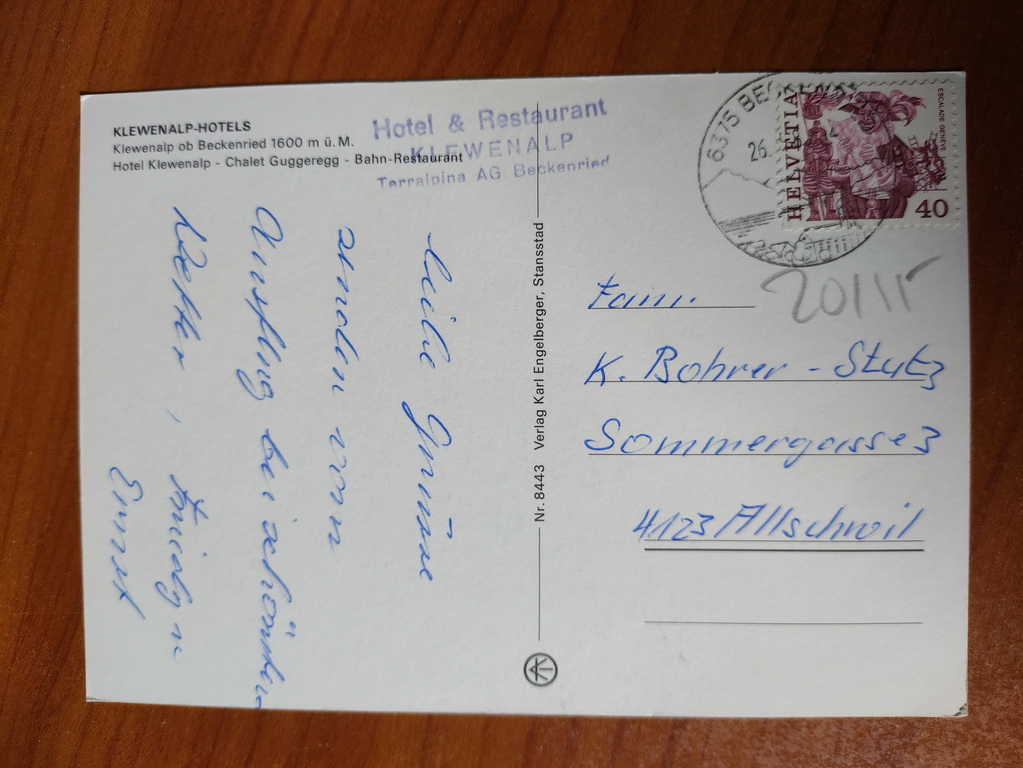 KLEWENALP-HOTELS
Klewenalp ob Beckenried 1600 m ü. M.
Hotel Klewenalp - Chalet Guggeregg - Bahn-Restaurant
Hotel & Restaurant
KLEWENALP
Terralpina AG Beckenried
6375 BECKENRIED
26.
HELVETIA
ESCALADE GENÈVE
40
20/15
Liebe Grüsse
senden von
Ausflug bei schönstem
Wetter,
Ernst
Nr. 8443 Verlag Karl Engelberger, Stansstad
Fam.
K. Bohrer - Stutz
Sommergasse 3
4123 Allschwil